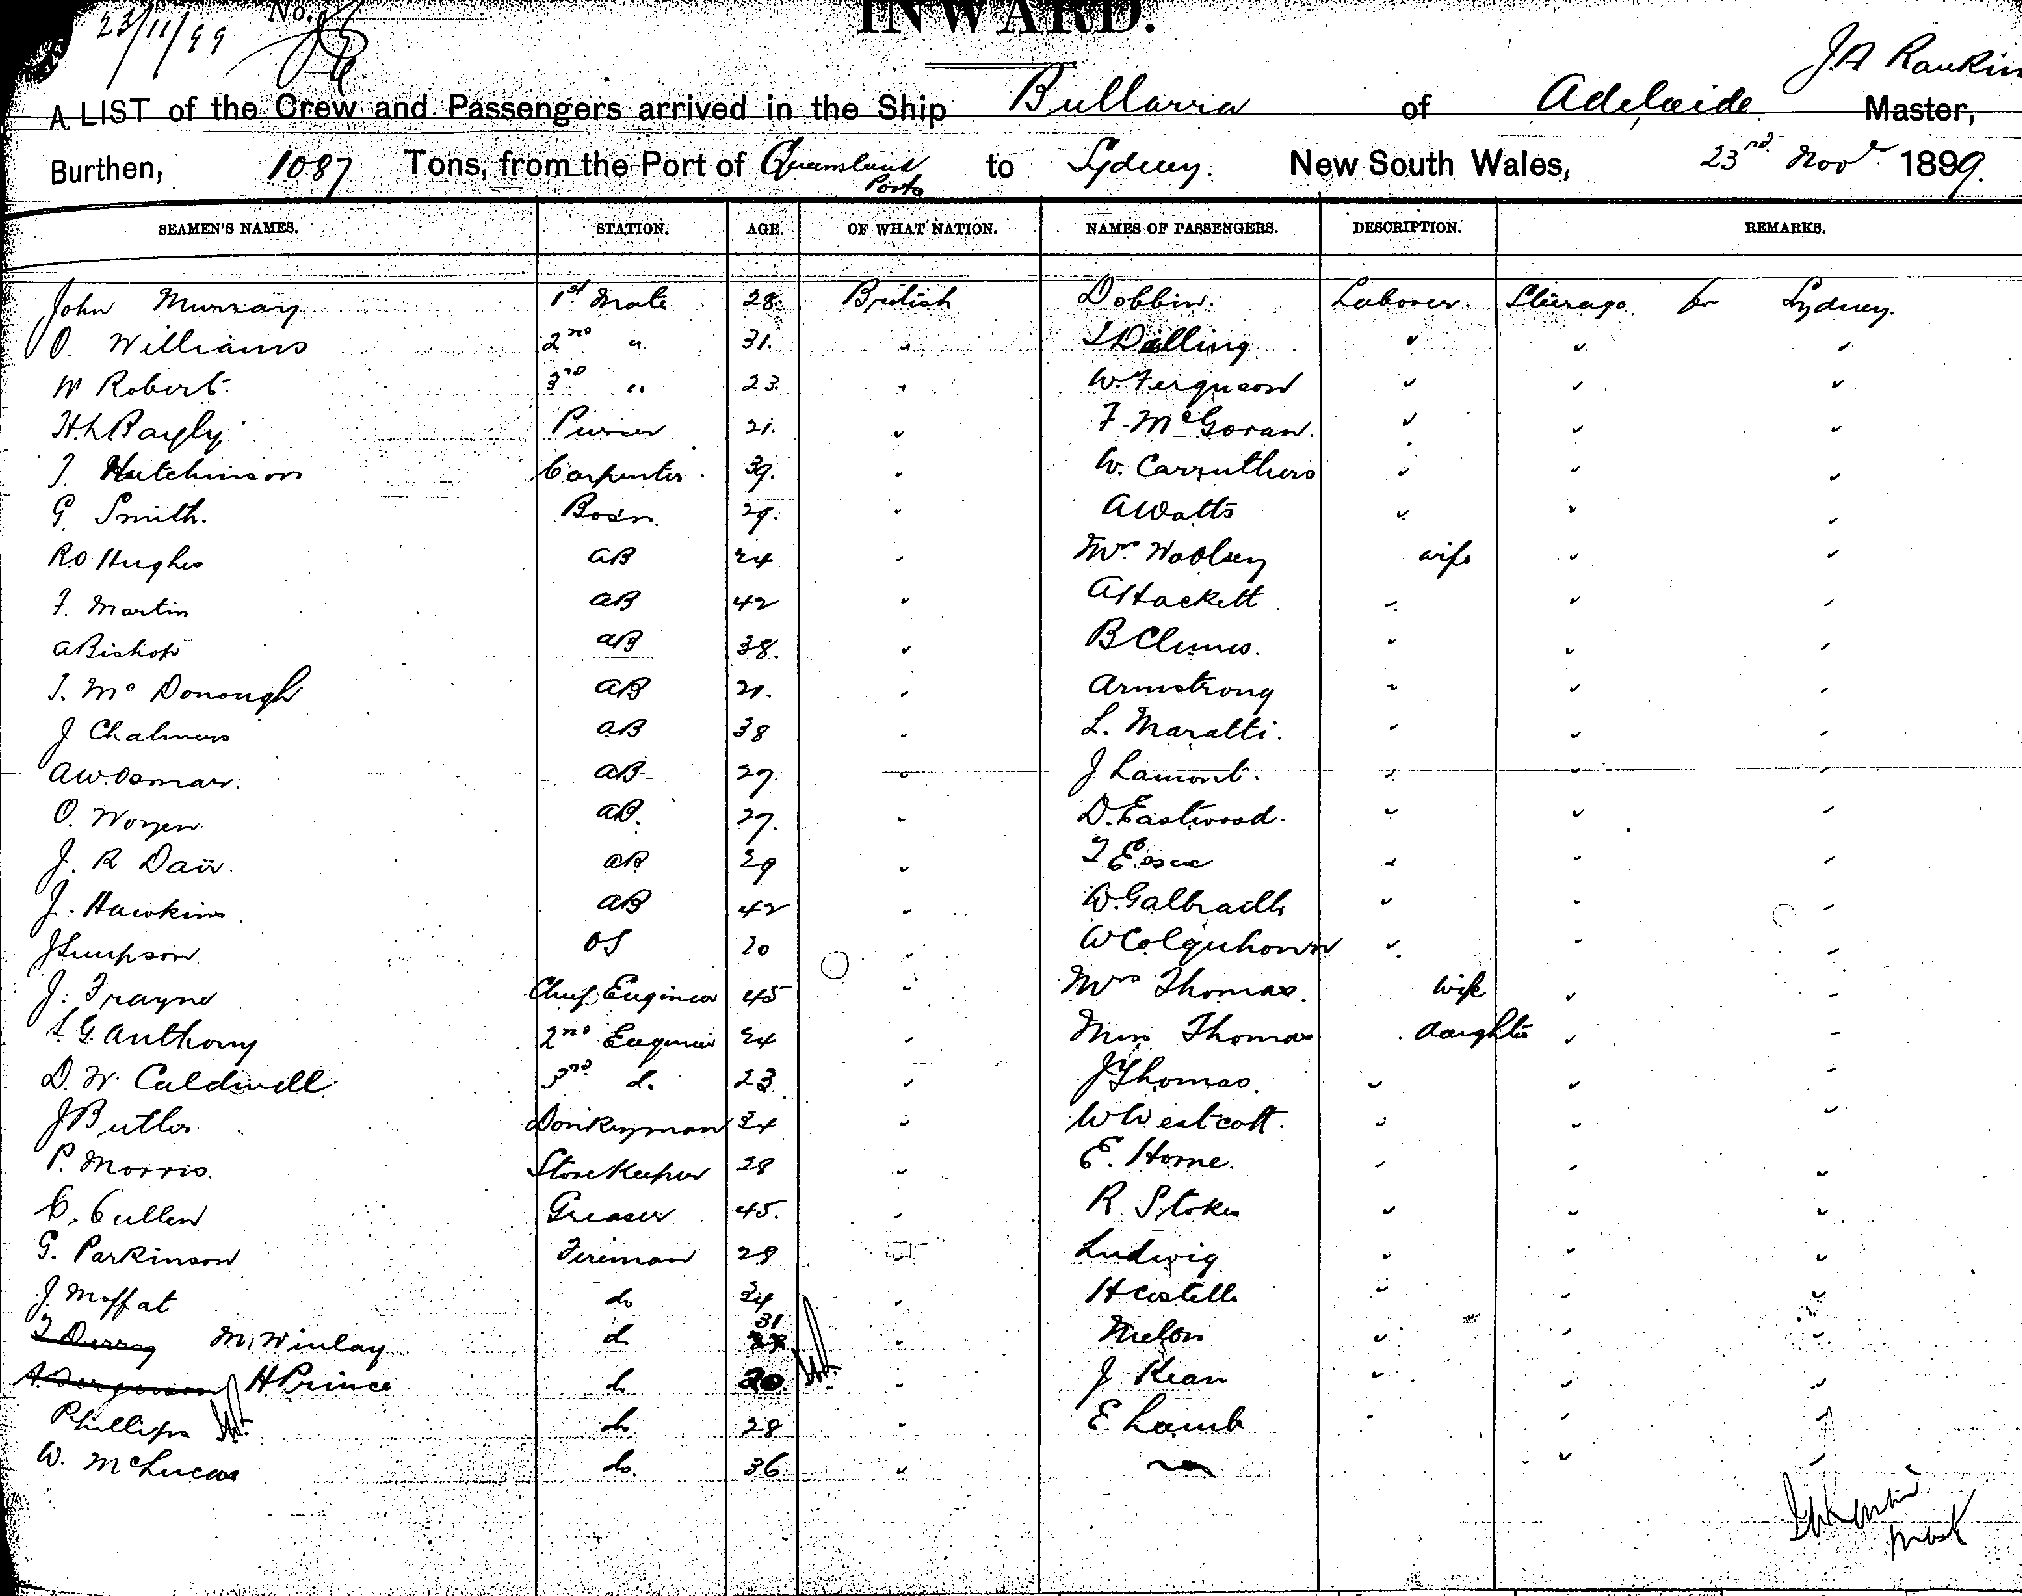 23/11/99 No.
INWARD.
J A Rankin
A LIST of the Crew and Passengers arrived in the Ship Bullarra of Adelaide Master,
Burthen, 1087 Tons, from the Port of Queensland Ports to Sydney. New South Wales, 23rd Novr 1899.
SEAMEN'S NAMES. STATION. AGE. OF WHAT NATION. NAMES OF PASSENGERS. DESCRIPTION. REMARKS.
John Murray 1st Mate 28. British Dobbin. Laborer. Steerage for Sydney.
O Williams 2nd " 31. " " " "
W Robert. 3rd " 23 " W. Ferguson " " "
H. L Bayly Purser 21. " F. McGoran. " " "
J Hutchinson Carpenter. 39. " W. Carruthers " " "
G. Smith. Bosn. 29. " A Watts " " "
R O Hughes AB 24 " Mrs Woolsey wife " "
F. Martin AB 42 " A Hackett " " "
A Bishop AB 38. " B Clunes. " " "
J. Mc Donough AB 21. " Armstrong " " "
J Chalmers AB 38 " L. Maratti. " " "
A W. Osmar. AB 27. " J Lamont. " " "
O. AB. 27. " D. Eastwood. " " "
J. R Dair. AB 29 " " " "
J. Hawkins. AB 42 " W. Galbraith " " "
J Simpson OS 20 " W Colquhoun " " "
J. Trayne Chief Engineer 45 " Mrs Thomas. wife " "
L. G. Anthony 2nd Engineer 24 " Miss Thomas daughter " "
D. W. Caldwell 3rd do. 23 " J Thomas. " " "
J Butler Donkeyman 34 " W Westcott. " " "
P. Morris. Storekeeper 28 " E. Horne. " " "
C. Cullen Greaser 45. " R. Stokes " " "
G. Parkinson Fireman 28 " Ludwig " " "
J. Moffat do 24 " H Costello " " "
M. Winlay do 31 " " " "
H Prince do 20 " J. Kean " " "
Phillips do 28 " E Lamb " " "
W. McLucas do. 36. " " "